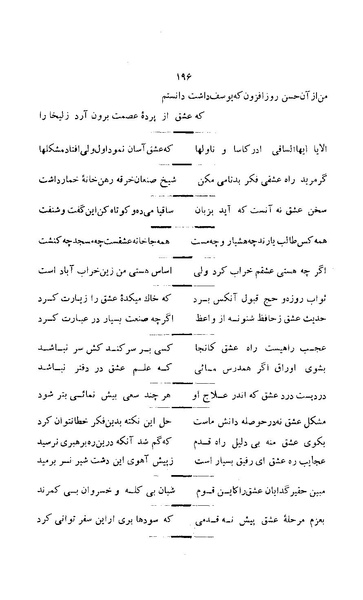 ۱۹۶
من از آن حسن روز افزون که یوسف داشت دانستم
که عشق از پردهٔ عصمت برون آرد زلیخا را
الا یا ایها الساقی ادر کاسا و ناولها که عشق آسان نمود اول ولی افتاد مشکلها
گر مرید راه عشقی فکر بدنامی مکن شیخ صنعان خرقه رهن خانهٔ خمار داشت
سخن عشق نه آنست که آید بزبان ساقیا می ده و کوتاه کن این گفت و شنفت
همه کس طالب یارند چه هشیار و چه مست همه جا خانه عشقست چه مسجد چه کنشت
اگر چه مستی عشقم خراب کرد ولی اساس هستی من زین خراب آباد است
ثواب روزه و حج قبول آنکس برد که خاک میکدهٔ عشق را زیارت کرد
حدیث عشق ز حافظ شنو نه از واعظ اگر چه صنعت بسیار در عبارت کرد
عجب راهیست راه عشق کانجا کسی بر سر کند کش سر نباشد
بشوی اوراق اگر همدرس مائی که علم عشق در دفتر نباشد
دردیست درد عشق که اندر علاج او هر چند سعی بیش نمائی بتر شود
مشکل عشق نه در حوصله دانش ماست حل این نکته بدین فکر خطا نتوان کرد
بکوی عشق منه بی دلیل راه قدم که گم شد آنکه درین ره برهبری نرسید
عجایب ره عشق ای رفیق بسیار است ز پیش آهوی این دشت شیر نر برمید
مبین حقیر گدایان عشق را کاین قوم شهان بی کله و خسروان بی کمرند
بعزم مرحلهٔ عشق پیش نه قدمی که سودها بری ار این سفر توانی کرد